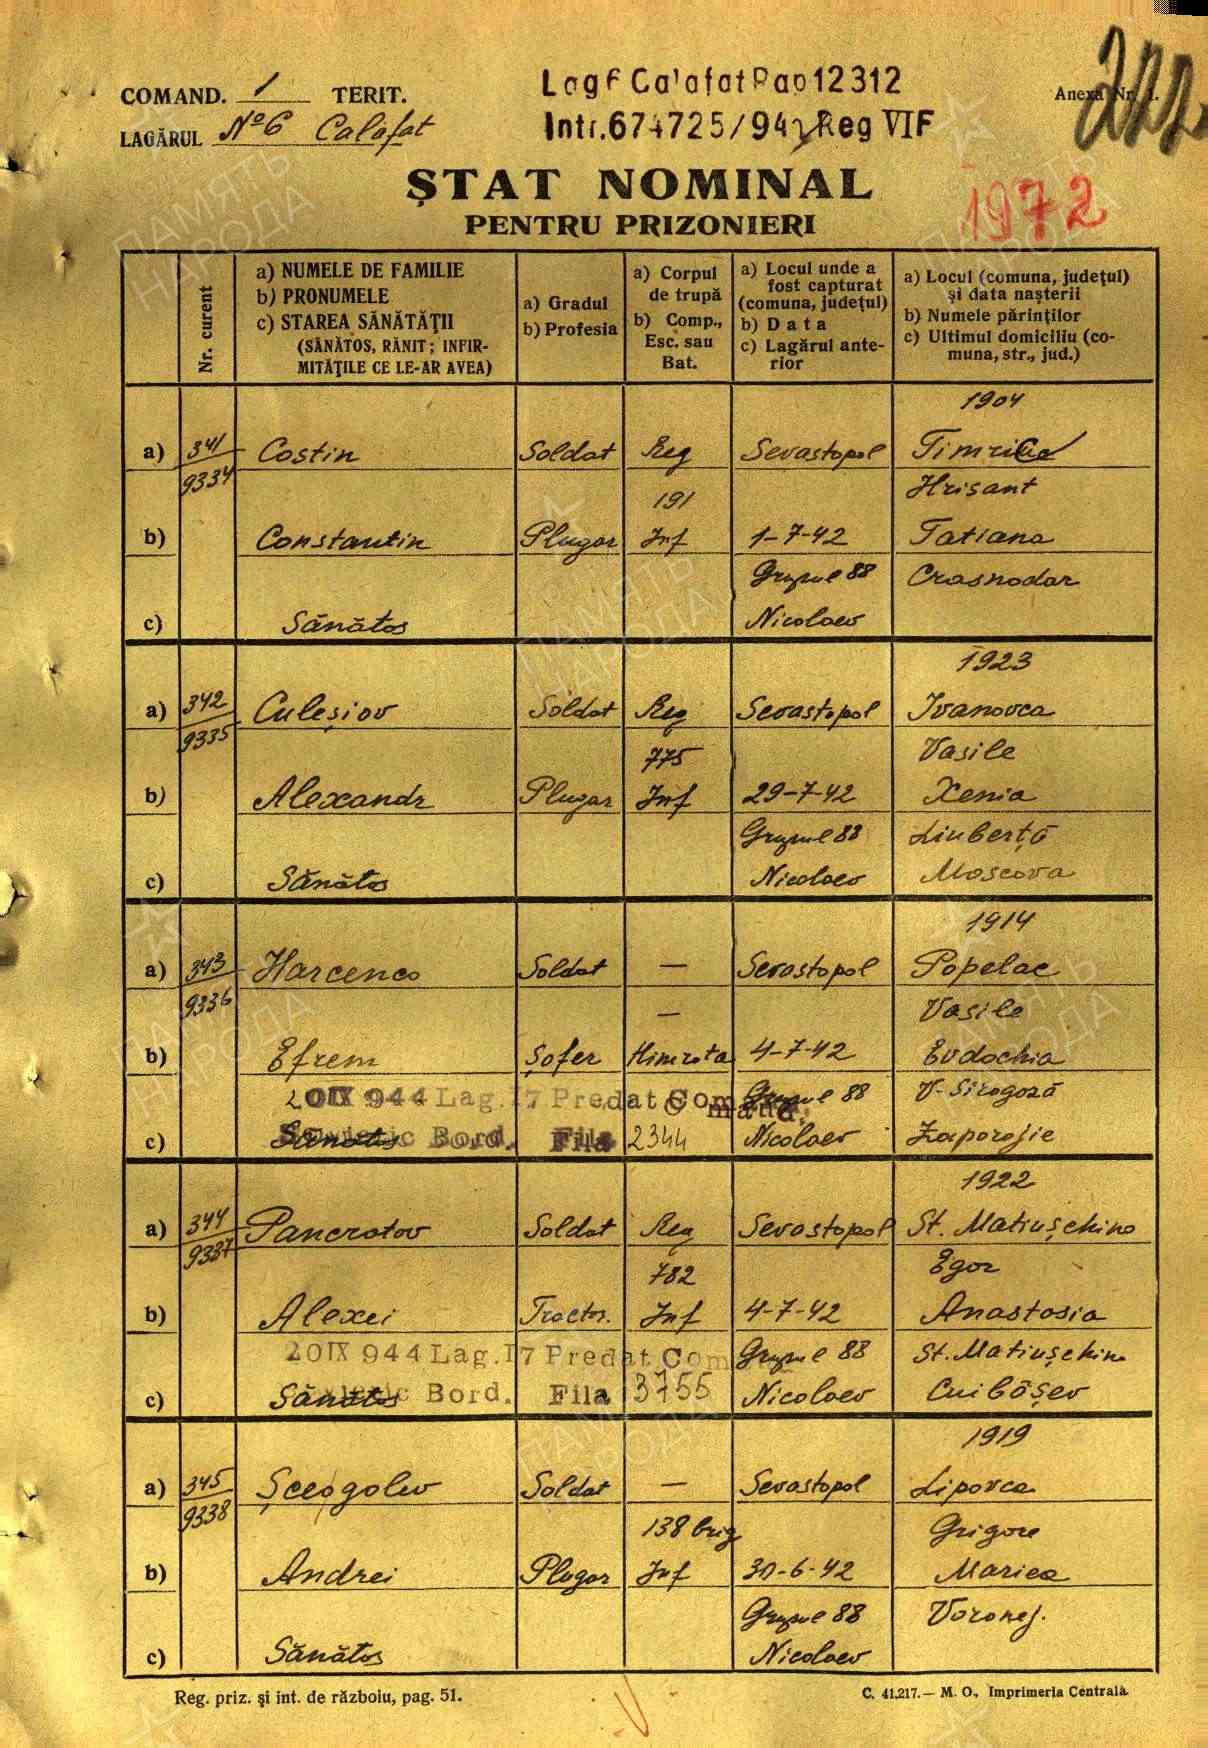 COMAND. 1 TERIT.
LAGĂRUL No 6 Calafat
Lag 6 Calafat Pap 12312
Intr. 674725/942 Reg VIF
Anexa Nr. 1.
1972
ȘTAT NOMINAL
PENTRU PRIZONIERI
Nr. curent
a) NUMELE DE FAMILIE
b) PRONUMELE
c) STAREA SĂNĂTĂȚII
(SĂNĂTOS, RĂNIT; INFIR-
MITĂȚILE CE LE-AR AVEA)
a) Gradul
b) Profesia
a) Corpul
de trupă
b) Comp.,
Esc. sau
Bat.
a) Locul unde a
fost capturat
(comuna, județul)
b) Data
c) Lagărul ante-
rior
a) Locul (comuna, județul)
și data nașterii
b) Numele părinților
c) Ultimul domiciliu (co-
muna, str., jud.)
1904
a) 341 Costin Soldat Reg Sevastopol
9334 191 Hrisant
b) Constantin Plugar Inf 1-7-42 Tatiana
Grupul 88 Crasnodar
c) Sănătos Nicolaev
1923
a) 342 Culeșiov Soldat Reg Sevastopol Ivanovca
9335 775 Vasile
b) Alexandr Plugar Inf 29-7-42 Xenia
Grupul 88 Liuberță
c) Sănătos Nicolaev Moscova
1914
a) 343 Harcenco Soldat — Sevastopol Popelac
9336 — Vasile
b) Efrem Șofer Himrota 4-7-42 Evdochia
20 IX 944 Lag. 17 Predat Comand. Grupul 88 V-Sirogoză
c) Sănătos Sovietic Bord. Fila 2344 Nicolaev Zaporojie
1922
a) 344 Pancratov Soldat Reg Sevastopol St. Matiușchino
9337 782 Egor
b) Alexei Tractor. Inf 4-7-42 Anastasia
20 IX 944 Lag. 17 Predat Comand. Grupul 88 St. Matiușchino
c) Sănătos Sovietic Bord. Fila 3755 Nicolaev Cuibâșev
1919
a) 345 Șceogolev Soldat — Sevastopol Lipovca
9338 138 brig Grigore
b) Andrei Plugar Inf 30-6-42 Mariea
Grupul 88 Voronej.
c) Sănătos Nicolaev
Reg. priz. și int. de războiu, pag. 51.
C. 41.217.— M. O., Imprimeria Centrală.
ПАМЯТЬ НАРОДА